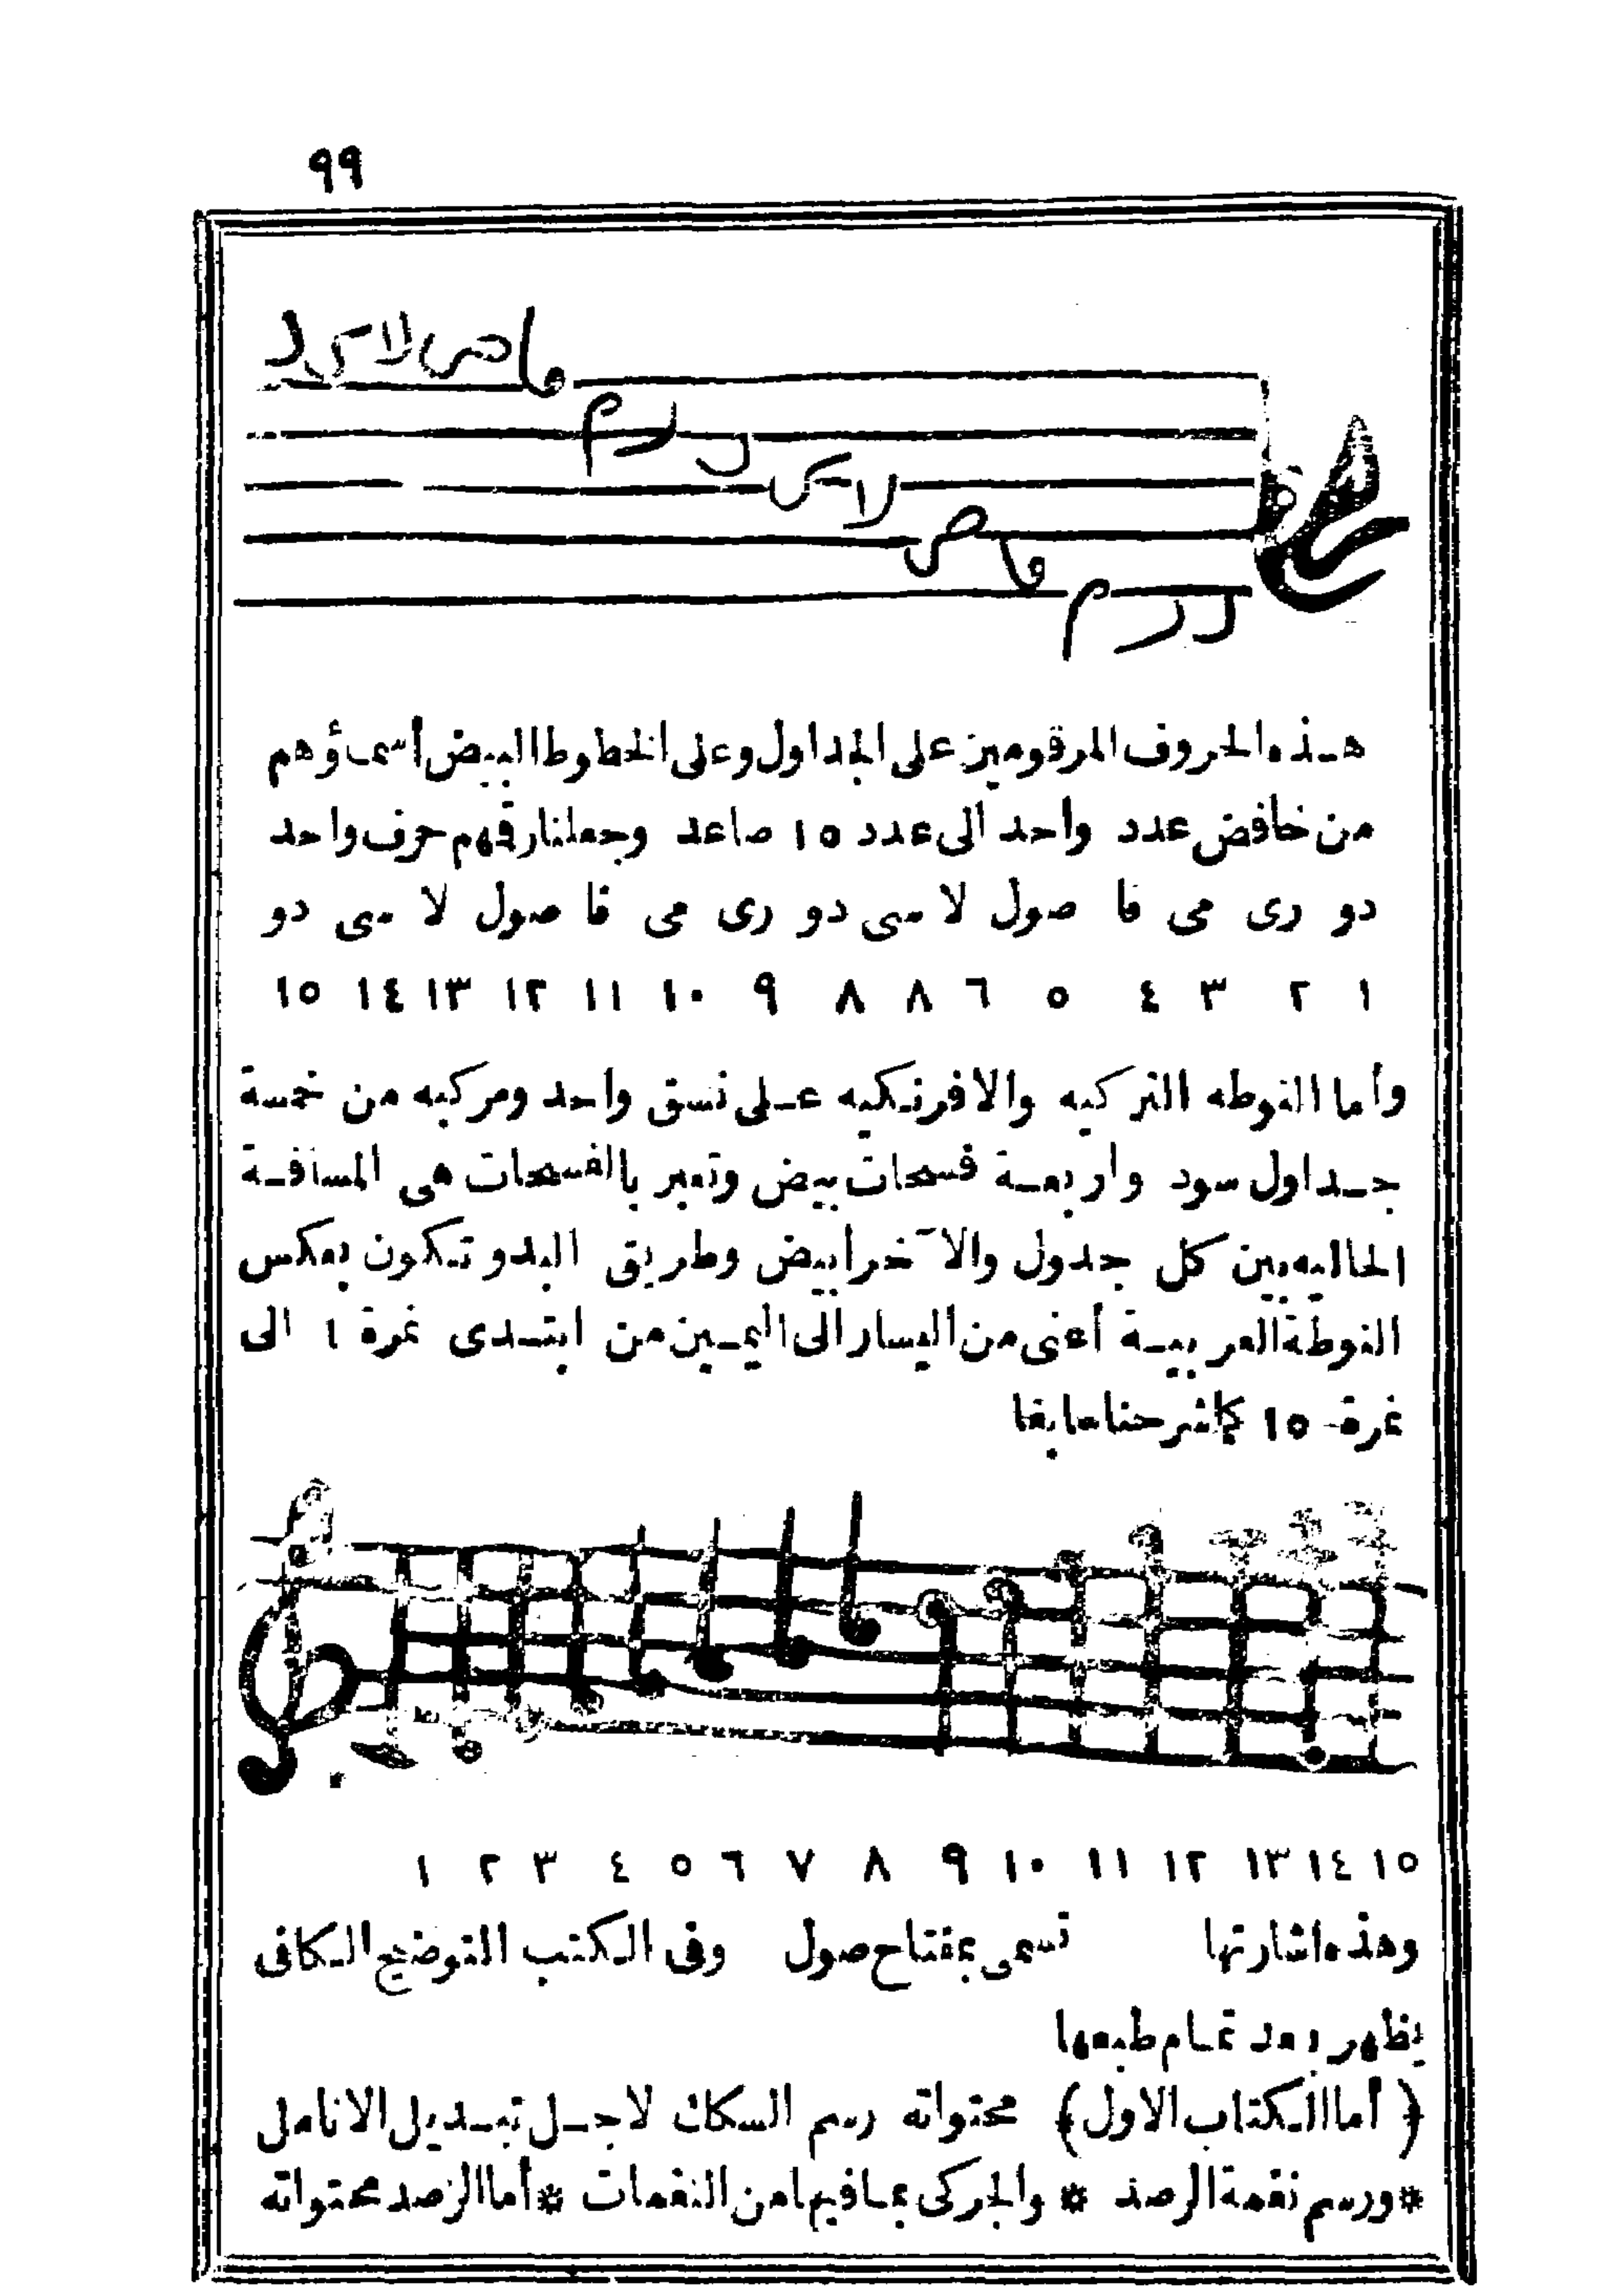 ٩٩
فا ص لا س د
د ر م
لا س
فا ص
د ر م
هـذه الحروف المرقومين على الجداول وعلى الخطوط البيض أسمـاؤهم
من خافض عدد واحد الى عدد ١٥ صاعد وجعلنا رقمهم حرف واحد
دو رى مى فا صول لا سى دو رى مى فا صول لا سى دو
١ ٢ ٣ ٤ ٥ ٦ ٨ ٨ ٩ ١٠ ١١ ١٢ ١٣ ١٤ ١٥
وأما النوطه التركيه والافرنـكيه عـلى نسق واحد ومركبه من خمسة
جـداول سود واربعـة فسحات بيض وتعبر باالفسحات هى المسافـة
الخاليه بين كل جدول والآخر ابيض وطريق البدو تـكون بعكس
النوطة العربيـة أعنى من اليسار الى اليمـين من ابتـدى نمرة ١ الى
نمرة ١٥ كما شرحنا سابقا
١ ٢ ٣ ٤ ٥ ٦ ٧ ٨ ٩ ١٠ ١١ ١٢ ١٣ ١٤ ١٥
وهذه اشارتها تسمى بمفتاح صول وفى الـكتب التوضيح الـكافى
يظهر بعد تمـام طبعها
﴿ أما الـكتاب الاول ﴾ محتواته رسم السكاك لاجـل تبـديل الانامل
*ورسم نغمة الرصد * والجركى بمـا فيها من النغمات *أما الرصد محتواته